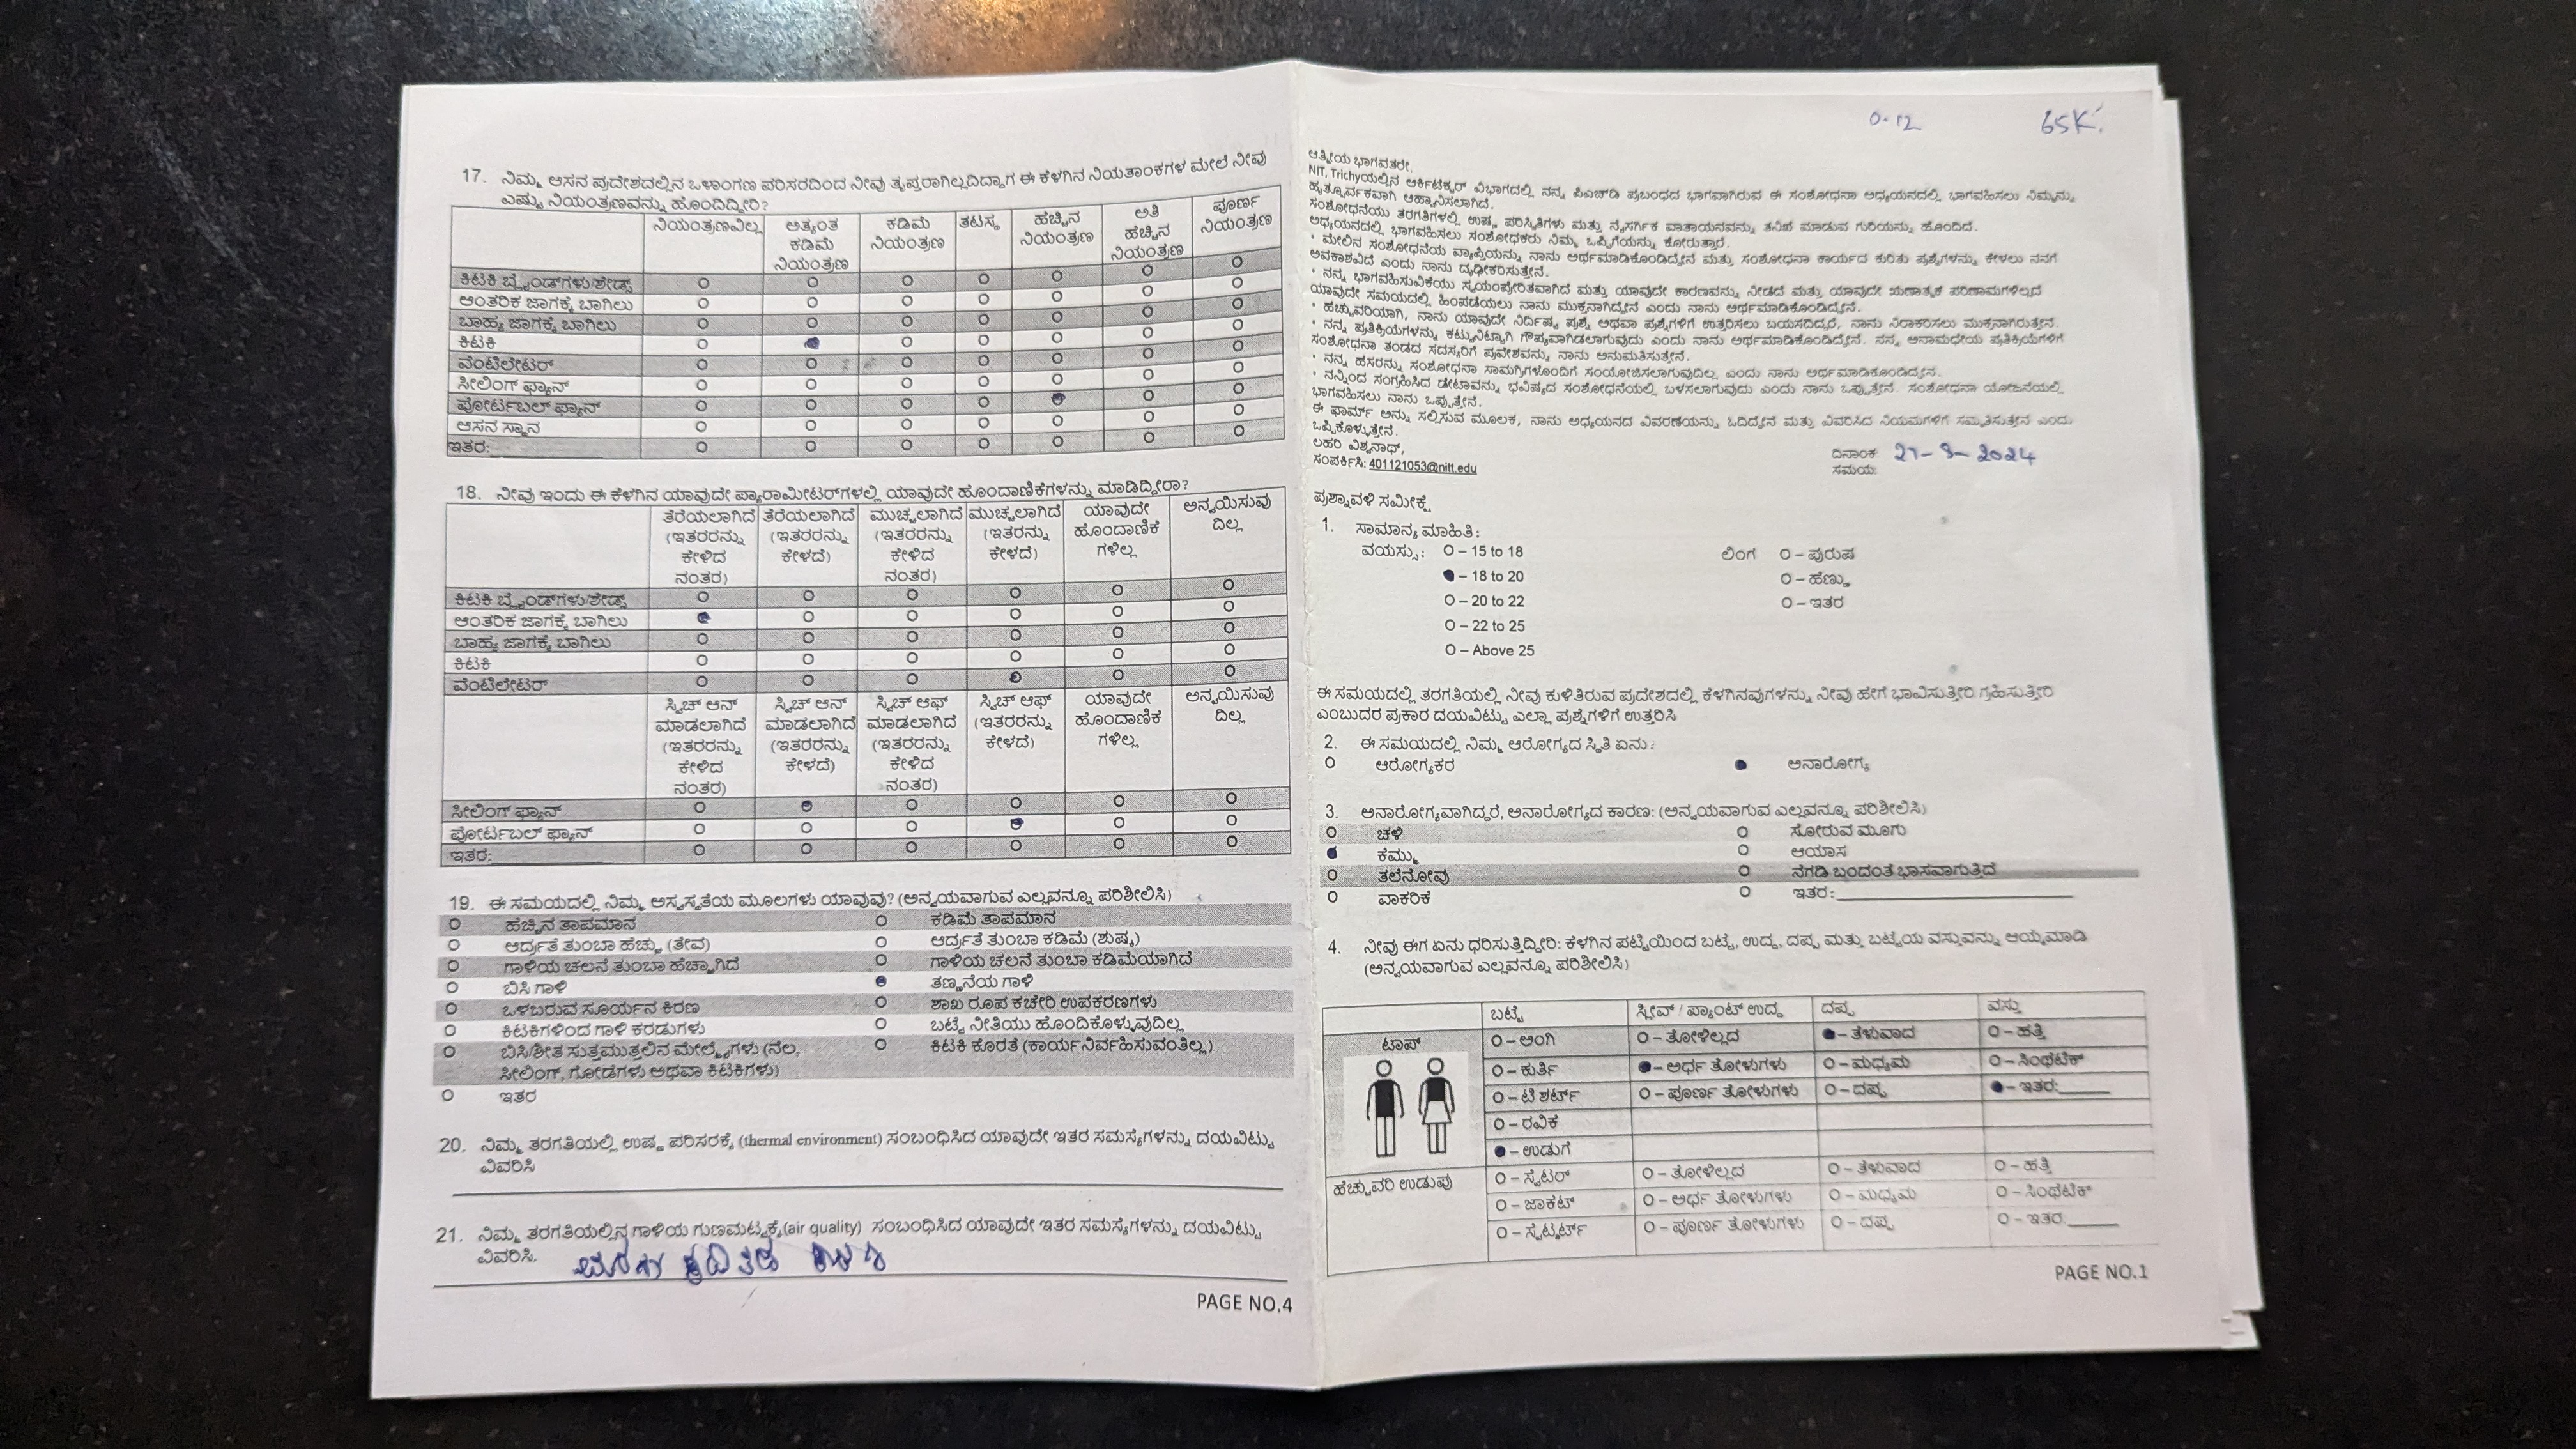 17. ನಿಮ್ಮ ಆಸನ ಪ್ರದೇಶದಲ್ಲಿನ ಒಳಾಂಗಣ ಪರಿಸರದಿಂದ ನೀವು ತೃಪ್ತರಾಗಿಲ್ಲದಿದ್ದಾಗ ಈ ಕೆಳಗಿನ ನಿಯತಾಂಕಗಳ ಮೇಲೆ ನೀವು
ಎಷ್ಟು ನಿಯಂತ್ರಣವನ್ನು ಹೊಂದಿದ್ದೀರಿ?
ನಿಯಂತ್ರಣವಿಲ್ಲ ಅತ್ಯಂತ ಕಡಿಮೆ ನಿಯಂತ್ರಣ ಕಡಿಮೆ ನಿಯಂತ್ರಣ ತಟಸ್ಥ ಹೆಚ್ಚಿನ ನಿಯಂತ್ರಣ ಅತಿ ಹೆಚ್ಚಿನ ನಿಯಂತ್ರಣ ಪೂರ್ಣ ನಿಯಂತ್ರಣ
ಕಿಟಕಿ ಬ್ಲೈಂಡ್‌ಗಳು/ಶೇಡ್ಸ್
ಆಂತರಿಕ ಜಾಗಕ್ಕೆ ಬಾಗಿಲು
ಬಾಹ್ಯ ಜಾಗಕ್ಕೆ ಬಾಗಿಲು
ಕಿಟಕಿ
ವೆಂಟಿಲೇಟರ್
ಸೀಲಿಂಗ್ ಫ್ಯಾನ್
ಪೋರ್ಟಬಲ್ ಫ್ಯಾನ್
ಆಸನ ಸ್ಥಾನ
ಇತರ:
18. ನೀವು ಇಂದು ಈ ಕೆಳಗಿನ ಯಾವುದೇ ಪ್ಯಾರಾಮೀಟರ್‌ಗಳಲ್ಲಿ ಯಾವುದೇ ಹೊಂದಾಣಿಕೆಗಳನ್ನು ಮಾಡಿದ್ದೀರಾ?
ತೆರೆಯಲಾಗಿದೆ (ಇತರರನ್ನು ಕೇಳಿದ ನಂತರ) ತೆರೆಯಲಾಗಿದೆ (ಇತರರನ್ನು ಕೇಳದೆ) ಮುಚ್ಚಲಾಗಿದೆ (ಇತರರನ್ನು ಕೇಳಿದ ನಂತರ) ಮುಚ್ಚಲಾಗಿದೆ (ಇತರನ್ನು ಕೇಳದೆ) ಯಾವುದೇ ಹೊಂದಾಣಿಕೆ ಗಳಿಲ್ಲ ಅನ್ವಯಿಸುವು ದಿಲ್ಲ
ಕಿಟಕಿ ಬ್ಲೈಂಡ್‌ಗಳು/ಶೇಡ್ಸ್
ಆಂತರಿಕ ಜಾಗಕ್ಕೆ ಬಾಗಿಲು
ಬಾಹ್ಯ ಜಾಗಕ್ಕೆ ಬಾಗಿಲು
ಕಿಟಕಿ
ವೆಂಟಿಲೇಟರ್
ಸ್ವಿಚ್ ಆನ್ ಮಾಡಲಾಗಿದೆ (ಇತರರನ್ನು ಕೇಳಿದ ನಂತರ) ಸ್ವಿಚ್ ಆನ್ ಮಾಡಲಾಗಿದೆ (ಇತರರನ್ನು ಕೇಳದೆ) ಸ್ವಿಚ್ ಆಫ್ ಮಾಡಲಾಗಿದೆ (ಇತರರನ್ನು ಕೇಳಿದ ನಂತರ) ಸ್ವಿಚ್ ಆಫ್ (ಇತರರನ್ನು ಕೇಳದೆ) ಯಾವುದೇ ಹೊಂದಾಣಿಕೆ ಗಳಿಲ್ಲ ಅನ್ವಯಿಸುವು ದಿಲ್ಲ
ಸೀಲಿಂಗ್ ಫ್ಯಾನ್
ಪೋರ್ಟಬಲ್ ಫ್ಯಾನ್
ಇತರ:
19. ಈ ಸಮಯದಲ್ಲಿ ನಿಮ್ಮ ಅಸ್ವಸ್ಥತೆಯ ಮೂಲಗಳು ಯಾವುವು? (ಅನ್ವಯವಾಗುವ ಎಲ್ಲವನ್ನೂ ಪರಿಶೀಲಿಸಿ)
ಹೆಚ್ಚಿನ ತಾಪಮಾನ ಕಡಿಮೆ ತಾಪಮಾನ
ಆರ್ದ್ರತೆ ತುಂಬಾ ಹೆಚ್ಚು (ತೇವ) ಆರ್ದ್ರತೆ ತುಂಬಾ ಕಡಿಮೆ (ಶುಷ್ಕ)
ಗಾಳಿಯ ಚಲನೆ ತುಂಬಾ ಹೆಚ್ಚಾಗಿದೆ ಗಾಳಿಯ ಚಲನೆ ತುಂಬಾ ಕಡಿಮೆಯಾಗಿದೆ
ಬಿಸಿ ಗಾಳಿ ತಣ್ಣನೆಯ ಗಾಳಿ
ಒಳಬರುವ ಸೂರ್ಯನ ಕಿರಣ ಶಾಖ ರೂಪ ಕಚೇರಿ ಉಪಕರಣಗಳು
ಕಿಟಕಿಗಳಿಂದ ಗಾಳಿ ಕರಡುಗಳು ಬಟ್ಟೆ ನೀತಿಯು ಹೊಂದಿಕೊಳ್ಳುವುದಿಲ್ಲ
ಬಿಸಿ/ಶೀತ ಸುತ್ತಮುತ್ತಲಿನ ಮೇಲ್ಮೈಗಳು (ನೆಲ, ಕಿಟಕಿ ಕೊರತೆ (ಕಾರ್ಯನಿರ್ವಹಿಸುವಂತಿಲ್ಲ)
ಸೀಲಿಂಗ್, ಗೋಡೆಗಳು ಅಥವಾ ಕಿಟಕಿಗಳು)
ಇತರ
20. ನಿಮ್ಮ ತರಗತಿಯಲ್ಲಿ ಉಷ್ಣ ಪರಿಸರಕ್ಕೆ (thermal environment) ಸಂಬಂಧಿಸಿದ ಯಾವುದೇ ಇತರ ಸಮಸ್ಯೆಗಳನ್ನು ದಯವಿಟ್ಟು
ವಿವರಿಸಿ
21. ನಿಮ್ಮ ತರಗತಿಯಲ್ಲಿನ ಗಾಳಿಯ ಗುಣಮಟ್ಟಕ್ಕೆ(air quality) ಸಂಬಂಧಿಸಿದ ಯಾವುದೇ ಇತರ ಸಮಸ್ಯೆಗಳನ್ನು ದಯವಿಟ್ಟು
ವಿವರಿಸಿ.
PAGE NO.4
0.12 65K.
ಆತ್ಮೀಯ ಭಾಗವತರೇ,
NIT, Trichyಯಲ್ಲಿನ ಆರ್ಕಿಟೆಕ್ಚರ್ ವಿಭಾಗದಲ್ಲಿ ನನ್ನ ಪಿಎಚ್‌ಡಿ ಪ್ರಬಂಧದ ಭಾಗವಾಗಿರುವ ಈ ಸಂಶೋಧನಾ ಅಧ್ಯಯನದಲ್ಲಿ ಭಾಗವಹಿಸಲು ನಿಮ್ಮನ್ನು
ಹೃತ್ಪೂರ್ವಕವಾಗಿ ಆಹ್ವಾನಿಸಲಾಗಿದೆ.
ಸಂಶೋಧನೆಯು ತರಗತಿಗಳಲ್ಲಿ ಉಷ್ಣ ಪರಿಸ್ಥಿತಿಗಳು ಮತ್ತು ನೈಸರ್ಗಿಕ ವಾತಾಯನವನ್ನು ತನಿಖೆ ಮಾಡುವ ಗುರಿಯನ್ನು ಹೊಂದಿದೆ.
ಅಧ್ಯಯನದಲ್ಲಿ ಭಾಗವಹಿಸಲು ಸಂಶೋಧಕರು ನಿಮ್ಮ ಒಪ್ಪಿಗೆಯನ್ನು ಕೋರುತ್ತಾರೆ.
• ಮೇಲಿನ ಸಂಶೋಧನೆಯ ವ್ಯಾಪ್ತಿಯನ್ನು ನಾನು ಅರ್ಥಮಾಡಿಕೊಂಡಿದ್ದೇನೆ ಮತ್ತು ಸಂಶೋಧನಾ ಕಾರ್ಯದ ಕುರಿತು ಪ್ರಶ್ನೆಗಳನ್ನು ಕೇಳಲು ನನಗೆ
ಅವಕಾಶವಿದೆ ಎಂದು ನಾನು ದೃಢೀಕರಿಸುತ್ತೇನೆ.
• ನನ್ನ ಭಾಗವಹಿಸುವಿಕೆಯು ಸ್ವಯಂಪ್ರೇರಿತವಾಗಿದೆ ಮತ್ತು ಯಾವುದೇ ಕಾರಣವನ್ನು ನೀಡದೆ ಮತ್ತು ಯಾವುದೇ ಋಣಾತ್ಮಕ ಪರಿಣಾಮಗಳಿಲ್ಲದೆ
ಯಾವುದೇ ಸಮಯದಲ್ಲಿ ಹಿಂಪಡೆಯಲು ನಾನು ಮುಕ್ತನಾಗಿದ್ದೇನೆ ಎಂದು ನಾನು ಅರ್ಥಮಾಡಿಕೊಂಡಿದ್ದೇನೆ.
• ಹೆಚ್ಚುವರಿಯಾಗಿ, ನಾನು ಯಾವುದೇ ನಿರ್ದಿಷ್ಟ ಪ್ರಶ್ನೆ ಅಥವಾ ಪ್ರಶ್ನೆಗಳಿಗೆ ಉತ್ತರಿಸಲು ಬಯಸದಿದ್ದರೆ, ನಾನು ನಿರಾಕರಿಸಲು ಮುಕ್ತನಾಗಿರುತ್ತೇನೆ.
• ನನ್ನ ಪ್ರತಿಕ್ರಿಯೆಗಳನ್ನು ಕಟ್ಟುನಿಟ್ಟಾಗಿ ಗೌಪ್ಯವಾಗಿಡಲಾಗುವುದು ಎಂದು ನಾನು ಅರ್ಥಮಾಡಿಕೊಂಡಿದ್ದೇನೆ. ನನ್ನ ಅನಾಮಧೇಯ ಪ್ರತಿಕ್ರಿಯೆಗಳಿಗೆ
ಸಂಶೋಧನಾ ತಂಡದ ಸದಸ್ಯರಿಗೆ ಪ್ರವೇಶವನ್ನು ನಾನು ಅನುಮತಿಸುತ್ತೇನೆ.
• ನನ್ನ ಹೆಸರನ್ನು ಸಂಶೋಧನಾ ಸಾಮಗ್ರಿಗಳೊಂದಿಗೆ ಸಂಯೋಜಿಸಲಾಗುವುದಿಲ್ಲ ಎಂದು ನಾನು ಅರ್ಥಮಾಡಿಕೊಂಡಿದ್ದೇನೆ.
• ನನ್ನಿಂದ ಸಂಗ್ರಹಿಸಿದ ಡೇಟಾವನ್ನು ಭವಿಷ್ಯದ ಸಂಶೋಧನೆಯಲ್ಲಿ ಬಳಸಲಾಗುವುದು ಎಂದು ನಾನು ಒಪ್ಪುತ್ತೇನೆ. ಸಂಶೋಧನಾ ಯೋಜನೆಯಲ್ಲಿ
ಭಾಗವಹಿಸಲು ನಾನು ಒಪ್ಪುತ್ತೇನೆ.
ಈ ಫಾರ್ಮ್ ಅನ್ನು ಸಲ್ಲಿಸುವ ಮೂಲಕ, ನಾನು ಅಧ್ಯಯನದ ವಿವರಣೆಯನ್ನು ಓದಿದ್ದೇನೆ ಮತ್ತು ವಿವರಿಸಿದ ನಿಯಮಗಳಿಗೆ ಸಮ್ಮತಿಸುತ್ತೇನೆ ಎಂದು
ಒಪ್ಪಿಕೊಳ್ಳುತ್ತೇನೆ.
ಲಹರಿ ವಿಶ್ವನಾಥ್,
ಸಂಪರ್ಕಿಸಿ: 401121053@nitt.edu
ದಿನಾಂಕ: 27-8-2024
ಸಮಯ:
ಪ್ರಶ್ನಾವಳಿ ಸಮೀಕ್ಷೆ
1. ಸಾಮಾನ್ಯ ಮಾಹಿತಿ:
ವಯಸ್ಸು: O – 15 to 18 ಲಿಂಗ O – ಪುರುಷ
– 18 to 20 O – ಹೆಣ್ಣು
O – 20 to 22 O – ಇತರ
O – 22 to 25
O – Above 25
ಈ ಸಮಯದಲ್ಲಿ ತರಗತಿಯಲ್ಲಿ ನೀವು ಕುಳಿತಿರುವ ಪ್ರದೇಶದಲ್ಲಿ ಕೆಳಗಿನವುಗಳನ್ನು ನೀವು ಹೇಗೆ ಭಾವಿಸುತ್ತೀರಿ ಗ್ರಹಿಸುತ್ತೀರಿ
ಎಂಬುದರ ಪ್ರಕಾರ ದಯವಿಟ್ಟು ಎಲ್ಲಾ ಪ್ರಶ್ನೆಗಳಿಗೆ ಉತ್ತರಿಸಿ
2. ಈ ಸಮಯದಲ್ಲಿ ನಿಮ್ಮ ಆರೋಗ್ಯದ ಸ್ಥಿತಿ ಏನು?
ಆರೋಗ್ಯಕರ ಅನಾರೋಗ್ಯ
3. ಅನಾರೋಗ್ಯವಾಗಿದ್ದರೆ, ಅನಾರೋಗ್ಯದ ಕಾರಣ: (ಅನ್ವಯವಾಗುವ ಎಲ್ಲವನ್ನೂ ಪರಿಶೀಲಿಸಿ)
ಚಳಿ ಸೋರುವ ಮೂಗು
ಕೆಮ್ಮು ಆಯಾಸ
ತಲೆನೋವು ನೆಗಡಿ ಬಂದಂತೆ ಭಾಸವಾಗುತ್ತಿದೆ
ವಾಕರಿಕೆ ಇತರ:
4. ನೀವು ಈಗ ಏನು ಧರಿಸುತ್ತಿದ್ದೀರಿ: ಕೆಳಗಿನ ಪಟ್ಟಿಯಿಂದ ಬಟ್ಟೆ, ಉದ್ದ, ದಪ್ಪ ಮತ್ತು ಬಟ್ಟೆಯ ವಸ್ತುವನ್ನು ಆಯ್ಕೆಮಾಡಿ
(ಅನ್ವಯವಾಗುವ ಎಲ್ಲವನ್ನೂ ಪರಿಶೀಲಿಸಿ)
ಬಟ್ಟೆ ಸ್ಲೀವ್ / ಪ್ಯಾಂಟ್ ಉದ್ದ ದಪ್ಪ ವಸ್ತು
ಟಾಪ್ O – ಅಂಗಿ O – ತೋಳಿಲ್ಲದ – ತೆಳುವಾದ O – ಹತ್ತಿ
O – ಕುರ್ತಿ – ಅರ್ಧ ತೋಳುಗಳು O – ಮಧ್ಯಮ O – ಸಿಂಥೆಟಿಕ್
O – ಟಿ ಶರ್ಟ್ O – ಪೂರ್ಣ ತೋಳುಗಳು O – ದಪ್ಪ – ಇತರ:
O – ರವಿಕೆ
– ಉಡುಗೆ
ಹೆಚ್ಚುವರಿ ಉಡುಪು O – ಸ್ವೆಟರ್ O – ತೋಳಿಲ್ಲದ O – ತೆಳುವಾದ O – ಹತ್ತಿ
O – ಜಾಕೆಟ್ O – ಅರ್ಧ ತೋಳುಗಳು O – ಮಧ್ಯಮ O – ಸಿಂಥೆಟಿಕ್
O – ಸ್ವೆಟ್ಶರ್ಟ್ O – ಪೂರ್ಣ ತೋಳುಗಳು O – ದಪ್ಪ O – ಇತರ:
PAGE NO.1